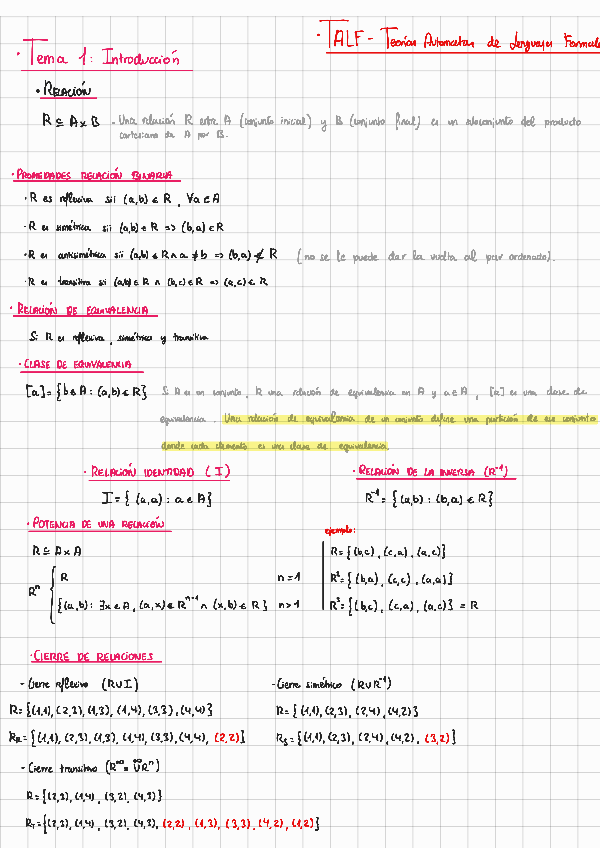 · TALF - Teorías Automatas de Lenguajes Formale
· Tema 1: Introducción
· RELACIÓN
R ⊆ A x B - Una relación R entre A (conjunto inicial) y B (conjunto final) es un subconjunto del producto
cartesiano de A por B.
· PROPIEDADES RELACIÓN BINARIA
· R es reflexiva sii (a,b) ∈ R, ∀a ∈ A
· R es simétrica sii (a,b) ∈ R => (b,a) ∈ R
· R es antisimétrica sii (a,b) ∈ R ∧ a ≠ b => (b,a) ∉ R (no se le puede dar la vuelta al par ordenado).
· R es transitiva sii (a,b) ∈ R ∧ (b,c) ∈ R => (a,c) ∈ R
· RELACIÓN DE EQUIVALENCIA
Si R es reflexiva, simétrica y transitiva
· CLASE DE EQUIVALENCIA
[a] = {b ∈ A : (a,b) ∈ R} Si A es un conjunto, R una relación de equivalencia en A y a ∈ A, [a] es una clase de
equivalencia. Una relación de equivalencia de un conjunto define una partición de ese conjunto
donde cada elemento es una clase de equivalencia.
· RELACIÓN IDENTIDAD (I)
I = { (a,a) : a ∈ A}
· RELACIÓN DE LA INVERSA (R⁻¹)
R⁻¹ = {(a,b) : (b,a) ∈ R}
· POTENCIA DE UNA RELACIÓN
R ⊆ A x A
Rⁿ { R n = 1
{(a,b) : ∃x ∈ A, (a,x) ∈ Rⁿ⁻¹ ∧ (x,b) ∈ R} n > 1
ejemplo:
R = {(b,c), (c,a), (a,c)}
R² = {(b,a), (c,c), (a,a)}
R³ = {(b,c), (c,a), (a,c)} = R
· CIERRE DE RELACIONES
- Cierre reflexivo (R∪I)
R = {(1,1), (2,3), (1,3), (1,4), (3,3), (4,4)}
R_R = {(1,1), (2,3), (1,3), (1,4), (3,3), (4,4), (2,2)}
- Cierre simétrico (R∪R⁻¹)
R = {(1,1), (2,3), (2,4), (4,2)}
R_S = {(1,1), (2,3), (2,4), (4,2), (3,2)}
- Cierre transitivo (R^∞ = ∪Rⁿ)
R = {(2,3), (1,4), (3,2), (4,3)}
R_T = {(2,3), (1,4), (3,2), (4,3), (2,2), (1,3), (3,3), (4,2), (1,2)}